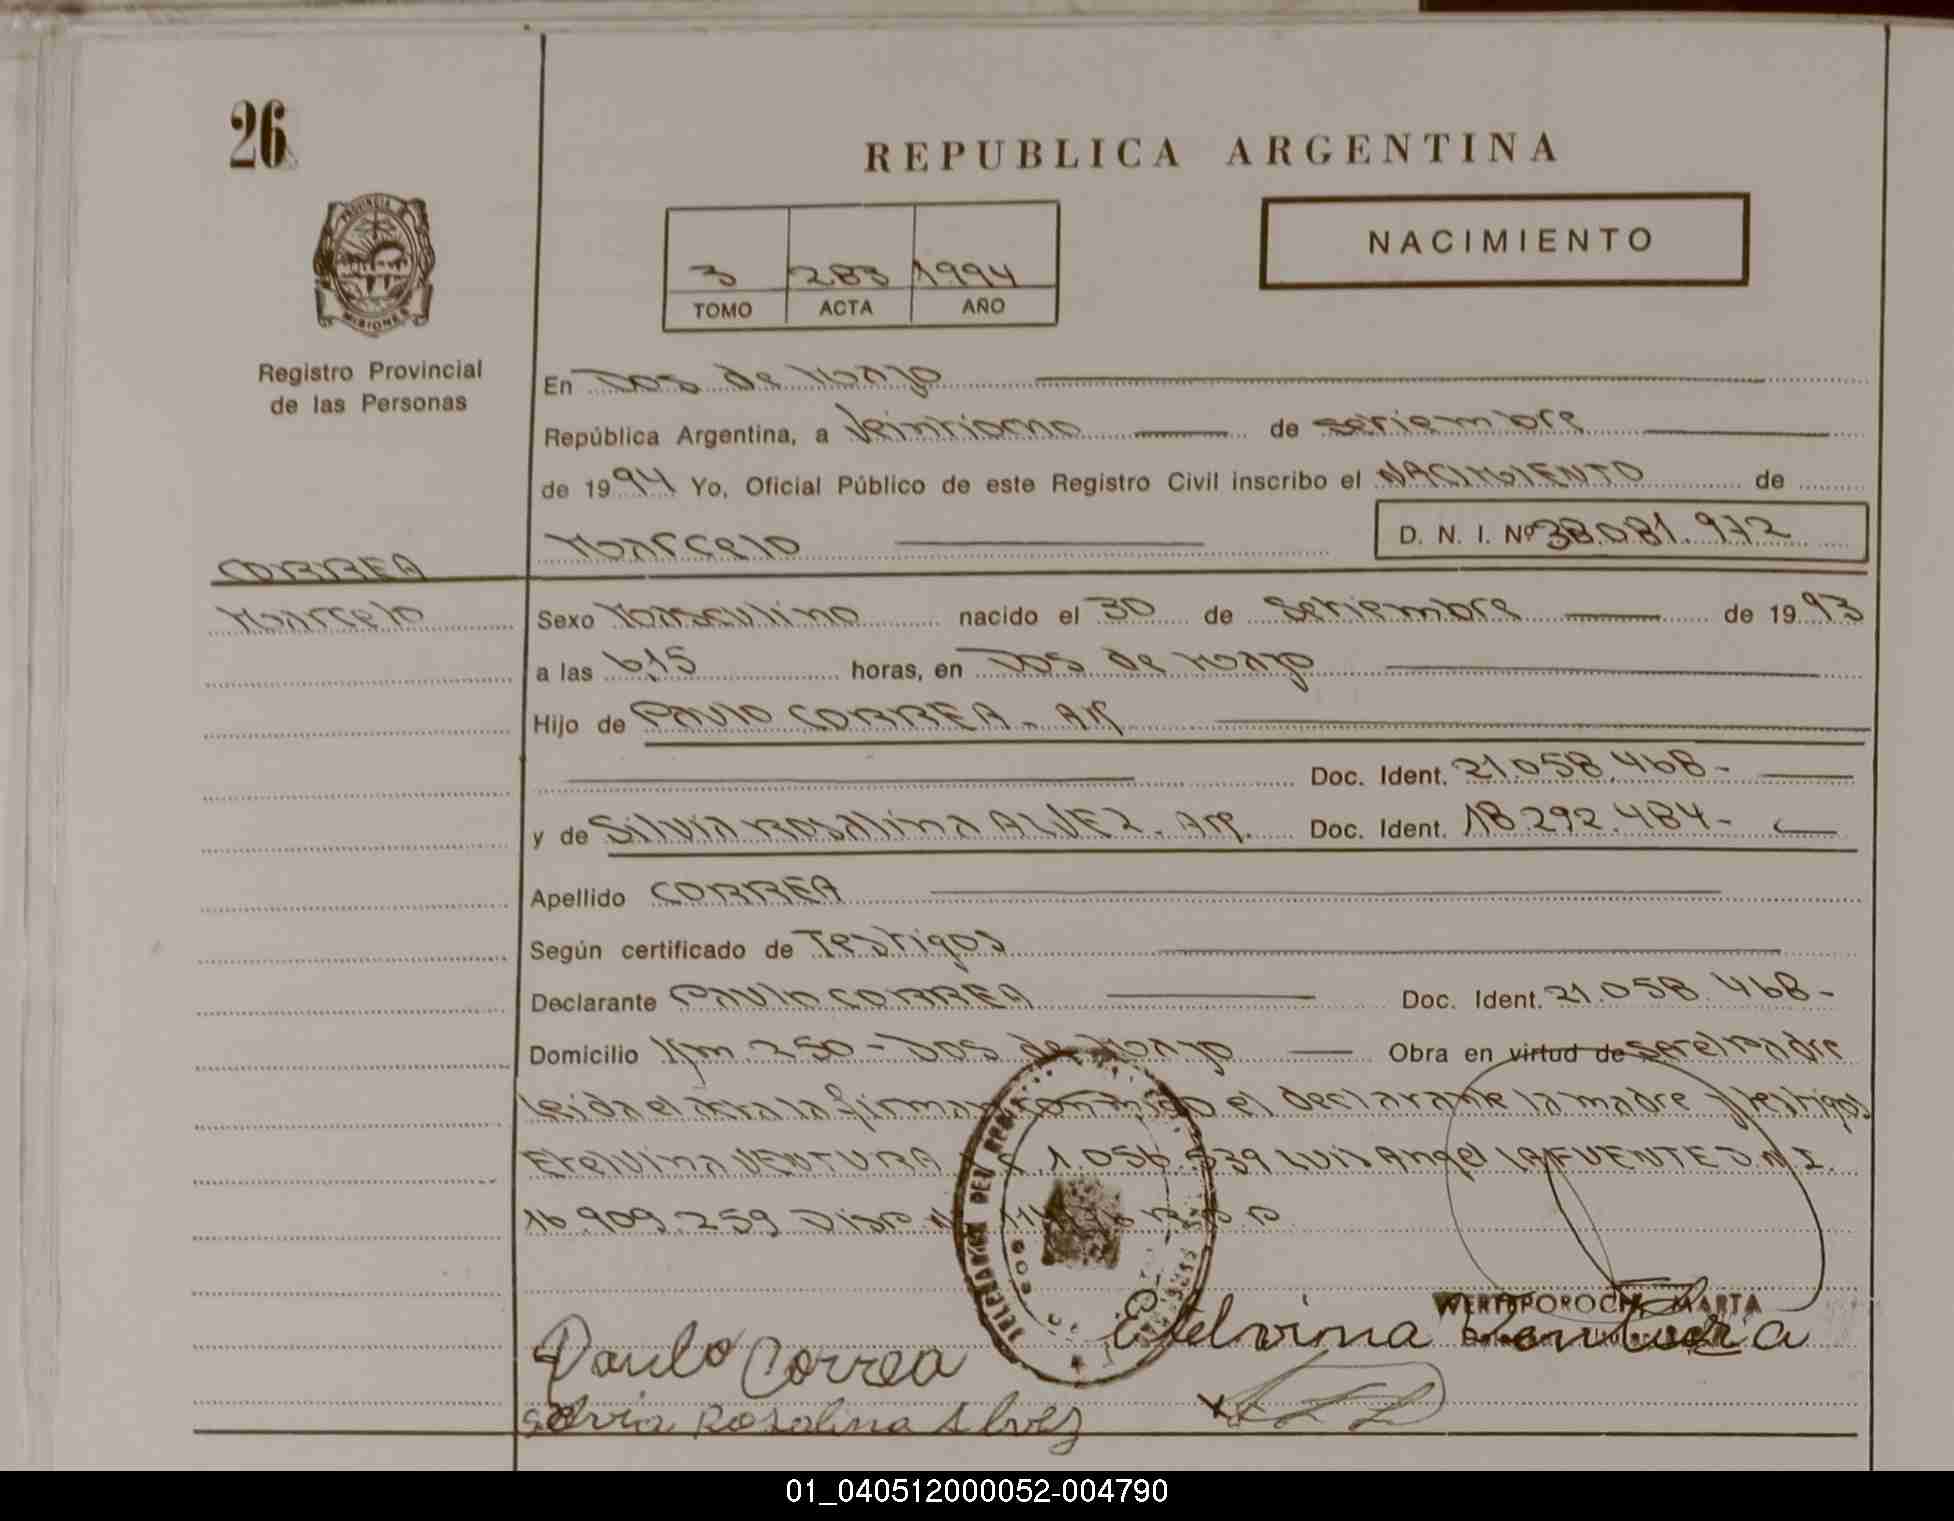 26
REPUBLICA ARGENTINA
PROVINCIA D
MISIONES
Registro Provincial
de las Personas
NACIMIENTO
3 283 1994
TOMO ACTA AÑO
En Dos de Mayo
República Argentina, a Veintiocho de setiembre
de 1994 Yo, Oficial Público de este Registro Civil inscribo el NACIMIENTO de
Marcelo D. N. I. Nº 38.081.972
CORREA
Marcelo
Sexo Masculino nacido el 30 de setiembre de 1993
a las 6,15 horas, en Dos de Mayo
Hijo de Paulo CORREA - Arg.
Doc. Ident. 21.058.468-
y de Silvia Rosalina ALVEZ - Arg. Doc. Ident. 18.292.484-
Apellido CORREA
Según certificado de Testigos
Declarante Paulo CORREA Doc. Ident. 21.058.468-
Domicilio Km 250 - Dos de Mayo Obra en virtud de ser el padre
leida el acta la firman conmigo el declarante la madre y testigos
Etelvina VENTURA 1.056.539 Luis Angel LAFUENTE D.N.I.
16.909.259 Disp. N
Paulo Correa
Etelvina Ventura
MARTA
Silvia Rosalina Alvez
01_040512000052-004790